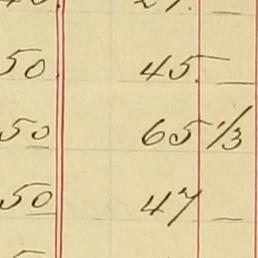 50 45 —
50 65 1/3
50 47 —